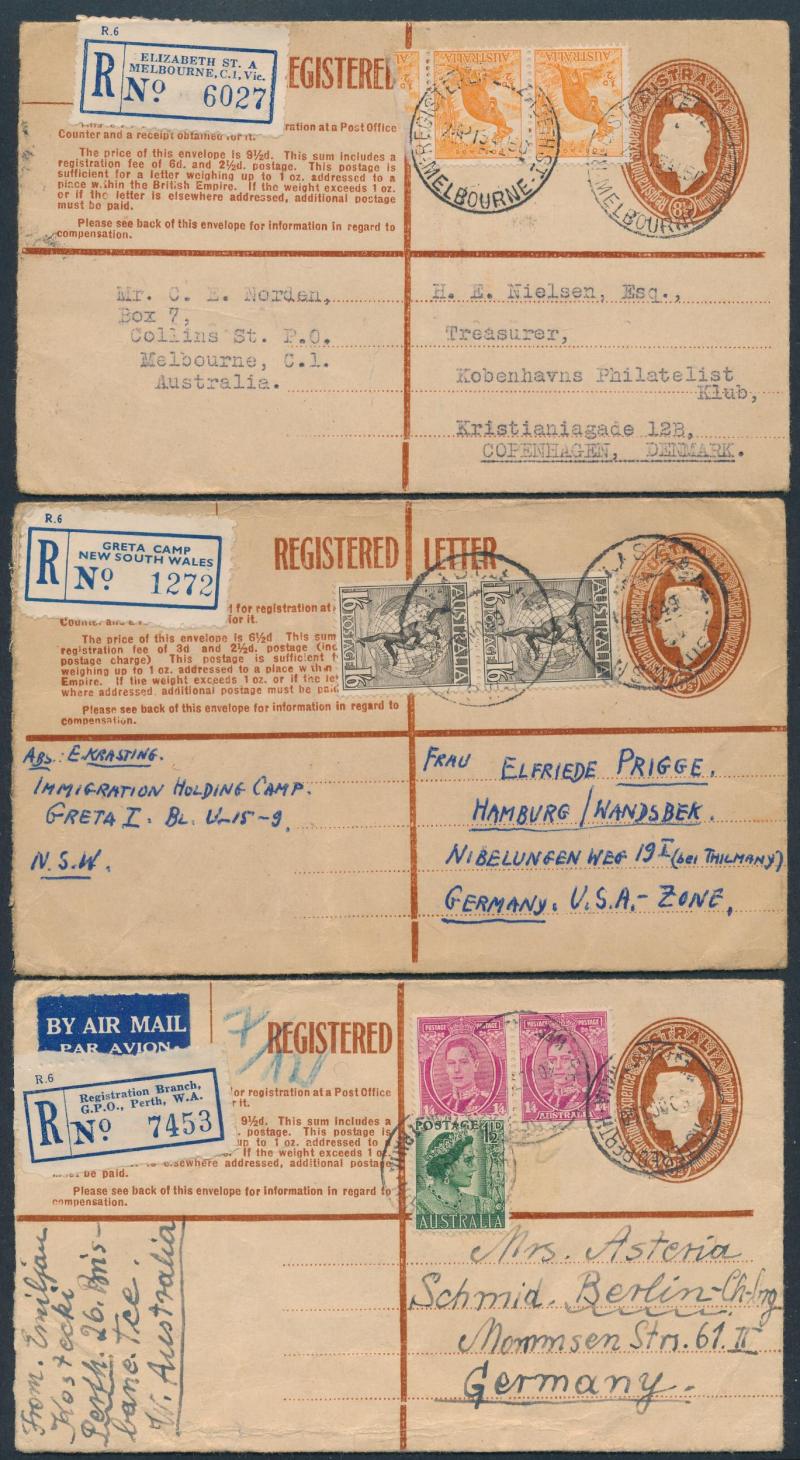 R.6
ELIZABETH ST. A
MELBOURNE, C.1, Vic.
R No 6027
REGISTERED
registration at a Post Office
Counter and a receipt obtained for it.
The price of this envelope is 8½d. This sum includes a
registration fee of 6d. and 2½d. postage. This postage is
sufficient for a letter weighing up to 1 oz. addressed to a
place within the British Empire. If the weight exceeds 1 oz.
or if the letter is elsewhere addressed, additional postage
must be paid.
Please see back of this envelope for information in regard to
compensation.
AUSTRALIA
½d
AUSTRALIA
½d
REGISTERED ELIZABETH ST.
MELBOURNE
AUSTRALIA
8½d
MELBOURNE
Mr. C. E. Norden,
Box 7,
Collins St. P.O.
Melbourne, C.1.
Australia.
H. E. Nielsen, Esq.,
Treasurer,
Kobenhavns Philatelist
Klub,
Kristianiagade 12B,
COPENHAGEN, DENMARK.
R.6
GRETA CAMP
NEW SOUTH WALES
R No 1272
REGISTERED LETTER
for registration at a Post Office
Counter and a for it.
The price of this envelope is 6½d. This sum
registration fee of 3d and 2½d. postage
postage charge) This postage is sufficient
weighing up to 1 oz. addressed to a place within
Empire. If the weight exceeds 1 oz. or if the
where addressed, additional postage must be paid
Please see back of this envelope for information in regard to
compensation.
1/6 POSTAGE 1/6
AUSTRALIA
1/6 POSTAGE 1/6
AUSTRALIA
AUSTRALIA
ABS: E. KRASTING.
IMMIGRATION HOLDING CAMP.
GRETA I. BL. U-15-9.
N.S.W.
FRAU ELFRIEDE PRIGGE.
HAMBURG/WANDSBEK.
NIBELUNGEN WEG 19 I (bei THILMANY)
GERMANY. U.S.A.-ZONE.
BY AIR MAIL
PAR AVION
R.6
Registration Branch,
G.P.O., Perth, W.A.
R No 7453
7/12
REGISTERED
for registration at a Post Office
for it.
This sum includes a
postage. This postage is
up to 1 oz. addressed to
If the weight exceeds 1 oz.
elsewhere addressed, additional postage
must be paid.
Please see back of this envelope for information in regard to
compensation.
POSTAGE
1/4 AUSTRALIA 1/4
POSTAGE
1/4 AUSTRALIA 1/4
POSTAGE 1½D
AUSTRALIA
AUSTRALIA
PERTH
From. Emiljan
Kostecki
Perth. 26. Bris-
bane. Tce.
W. Australia
Mrs. Asteria
Schmid. Berlin-Ch-brg
Mommsen Str. 61. II
Germany.